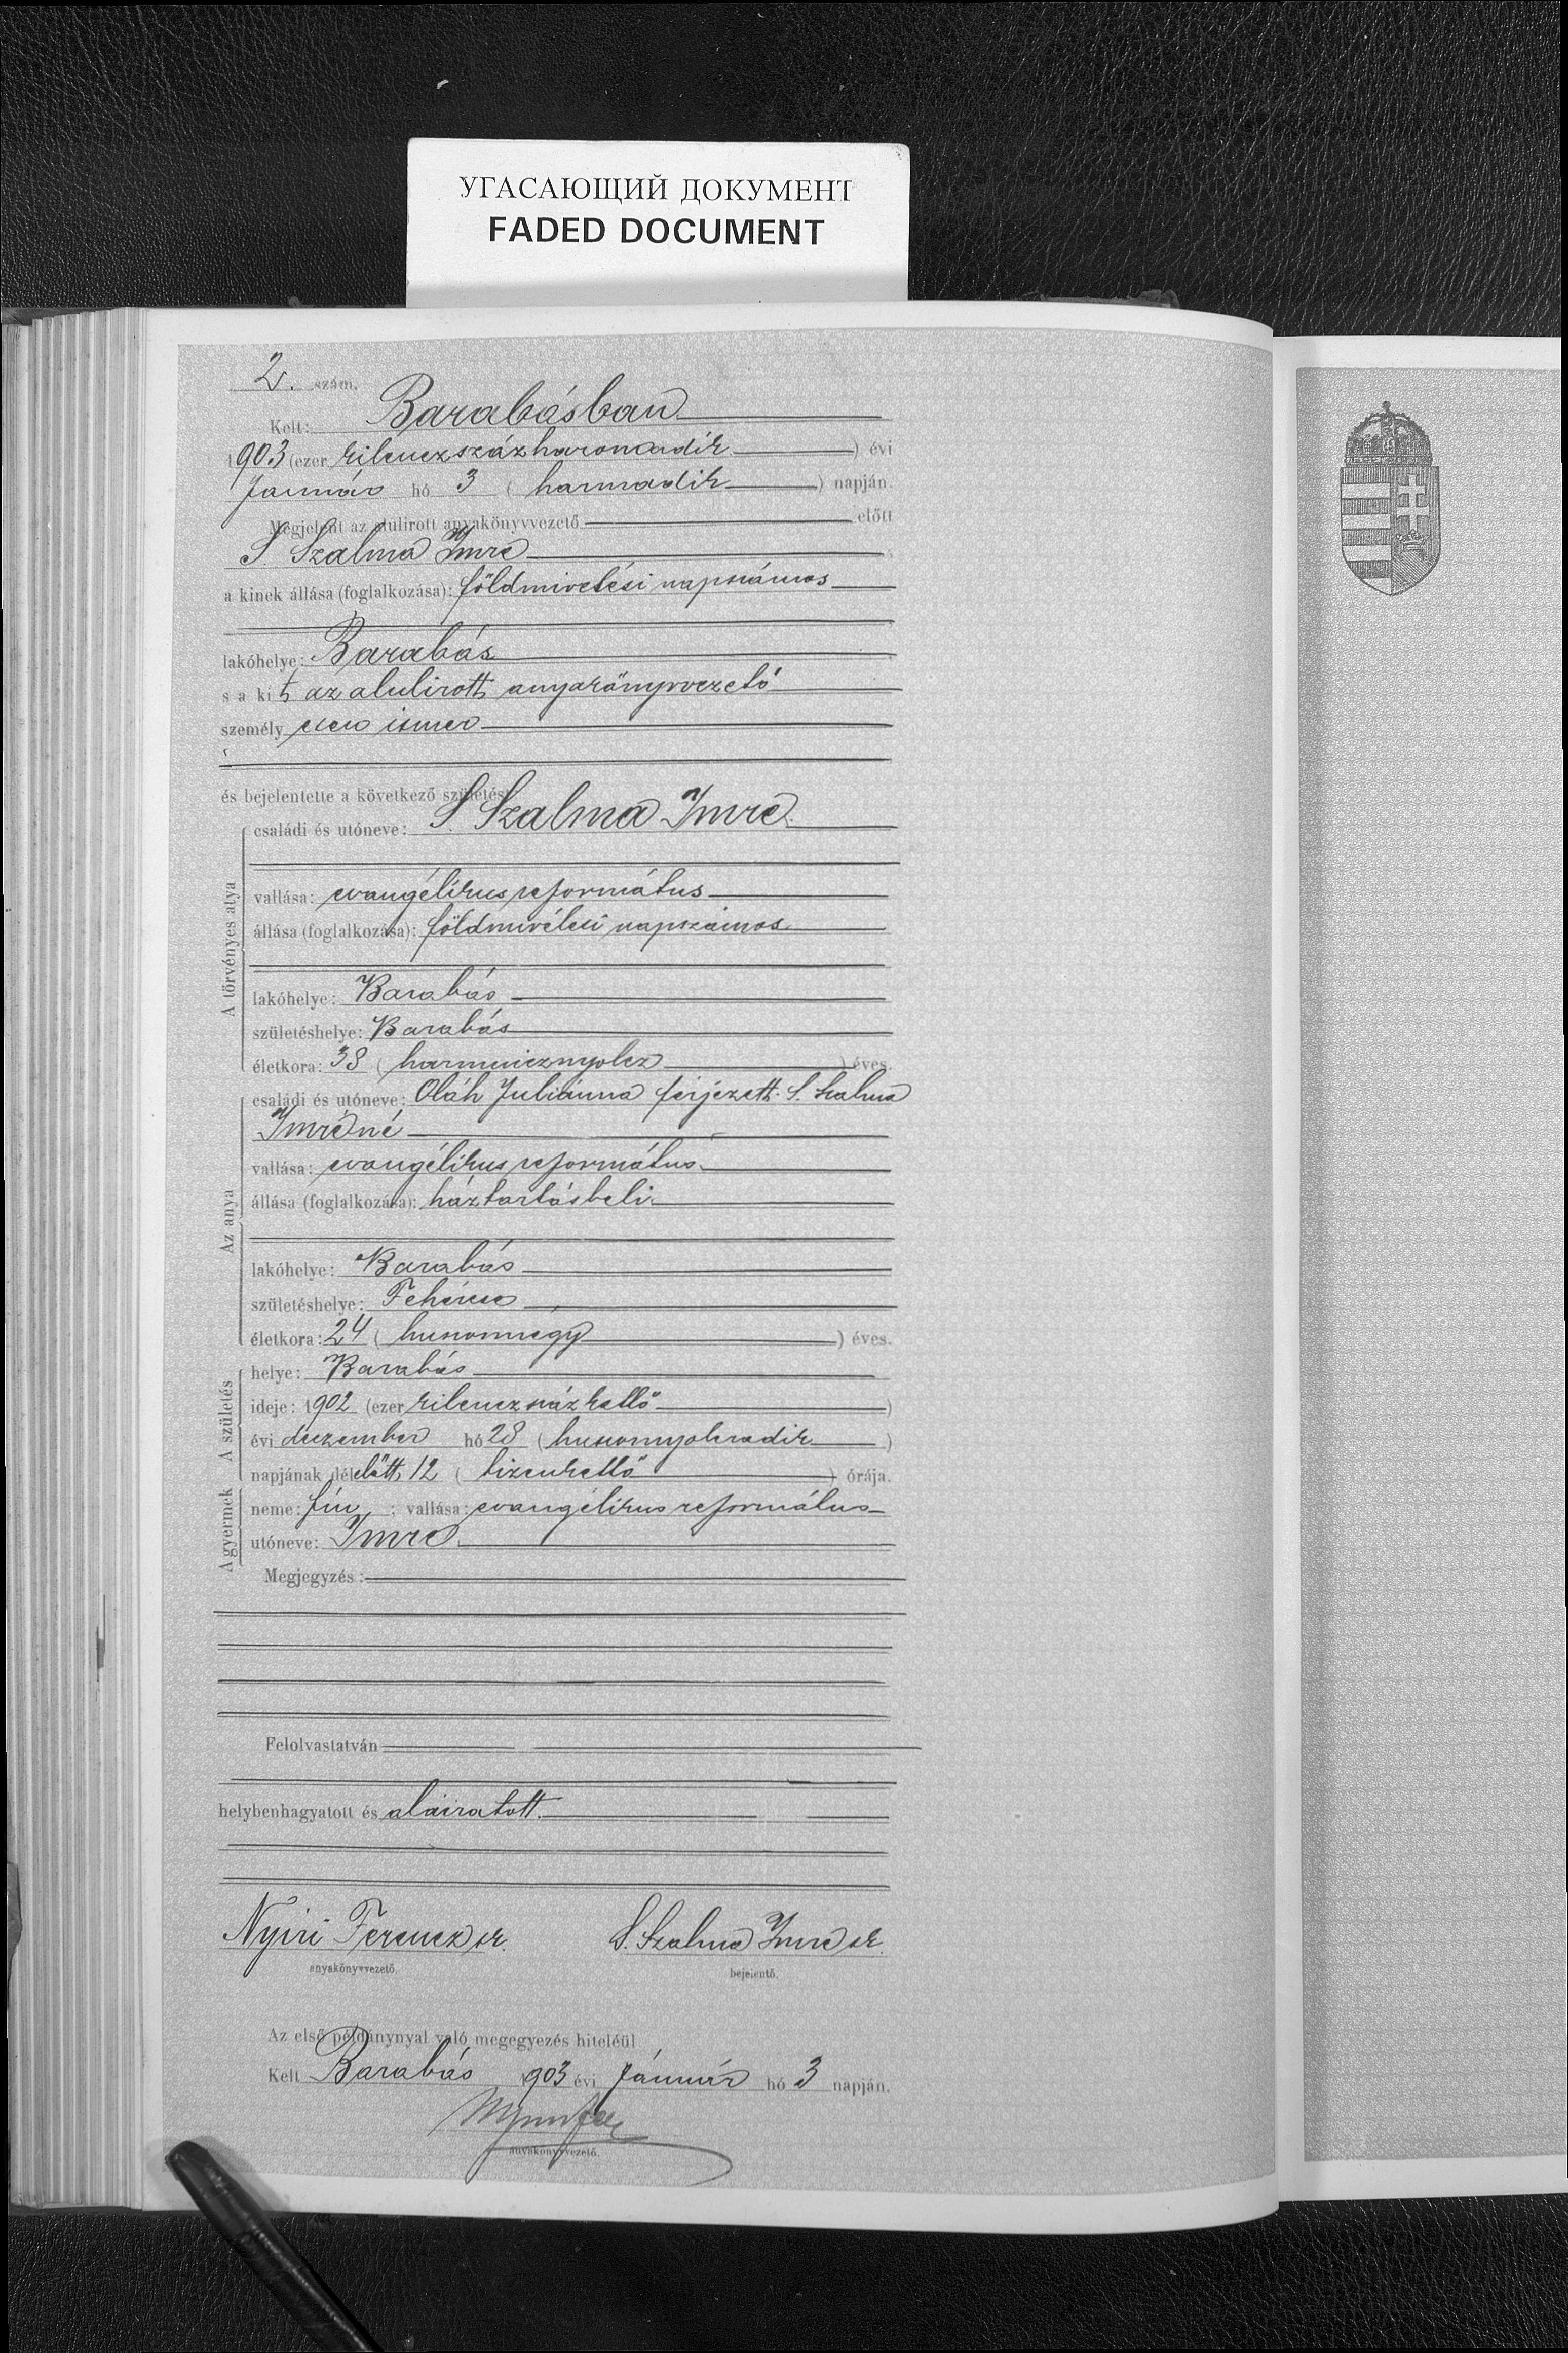 УГАСАЮЩИЙ ДОКУМЕНТ
FADED DOCUMENT
2. szám.
Kelt: Barabásban
1903 (ezer kilenczszázharomadik) évi
Január hó 3 (harmadik) napján.
Megjelent az alulirott anyakönyvvezető előtt
S Szalma Imre
a kinek állása (foglalkozása): földmivelési napszámos
lakóhelye: Barabás
s a kit az alulirott anyakönyvvezető
személyesen ismer
és bejelentette a következő születést
A törvényes atya
családi és utóneve: S Szalma Imre
vallása: evangélikus református
állása (foglalkozása): földmivelési napszámos
lakóhelye: Barabás
születéshelye: Barabás
életkora: 38 (harmincznyolcz) éves.
Az anya
családi és utóneve: Oláh Juliánna férjezett S. Szalma
Imréné
vallása: evangélikus református
állása (foglalkozása): háztartásbeli
lakóhelye: Barabás
születéshelye:
életkora: 24 (huszonnégy) éves.
A születés
helye: Barabás
ideje: 1902 (ezer kilenczszázkettő)
évi deczember hó 28 (huszonnyolczadik)
napjának délelőtt 12 (tizenkettő) órája.
A gyermek
neme: fiu; vallása: evangélikus református
utóneve: Imre
Megjegyzés:
Felolvastatván
helybenhagyatott és aláiratott.
Nyiri Ferencz sk. S. Szalma Imre sk.
anyakönyvvezető. bejelentő.
Az első példánynyal való megegyezés hiteléül
Kelt Barabás 1903 évi Január hó 3 napján.
anyakönyvvezető.